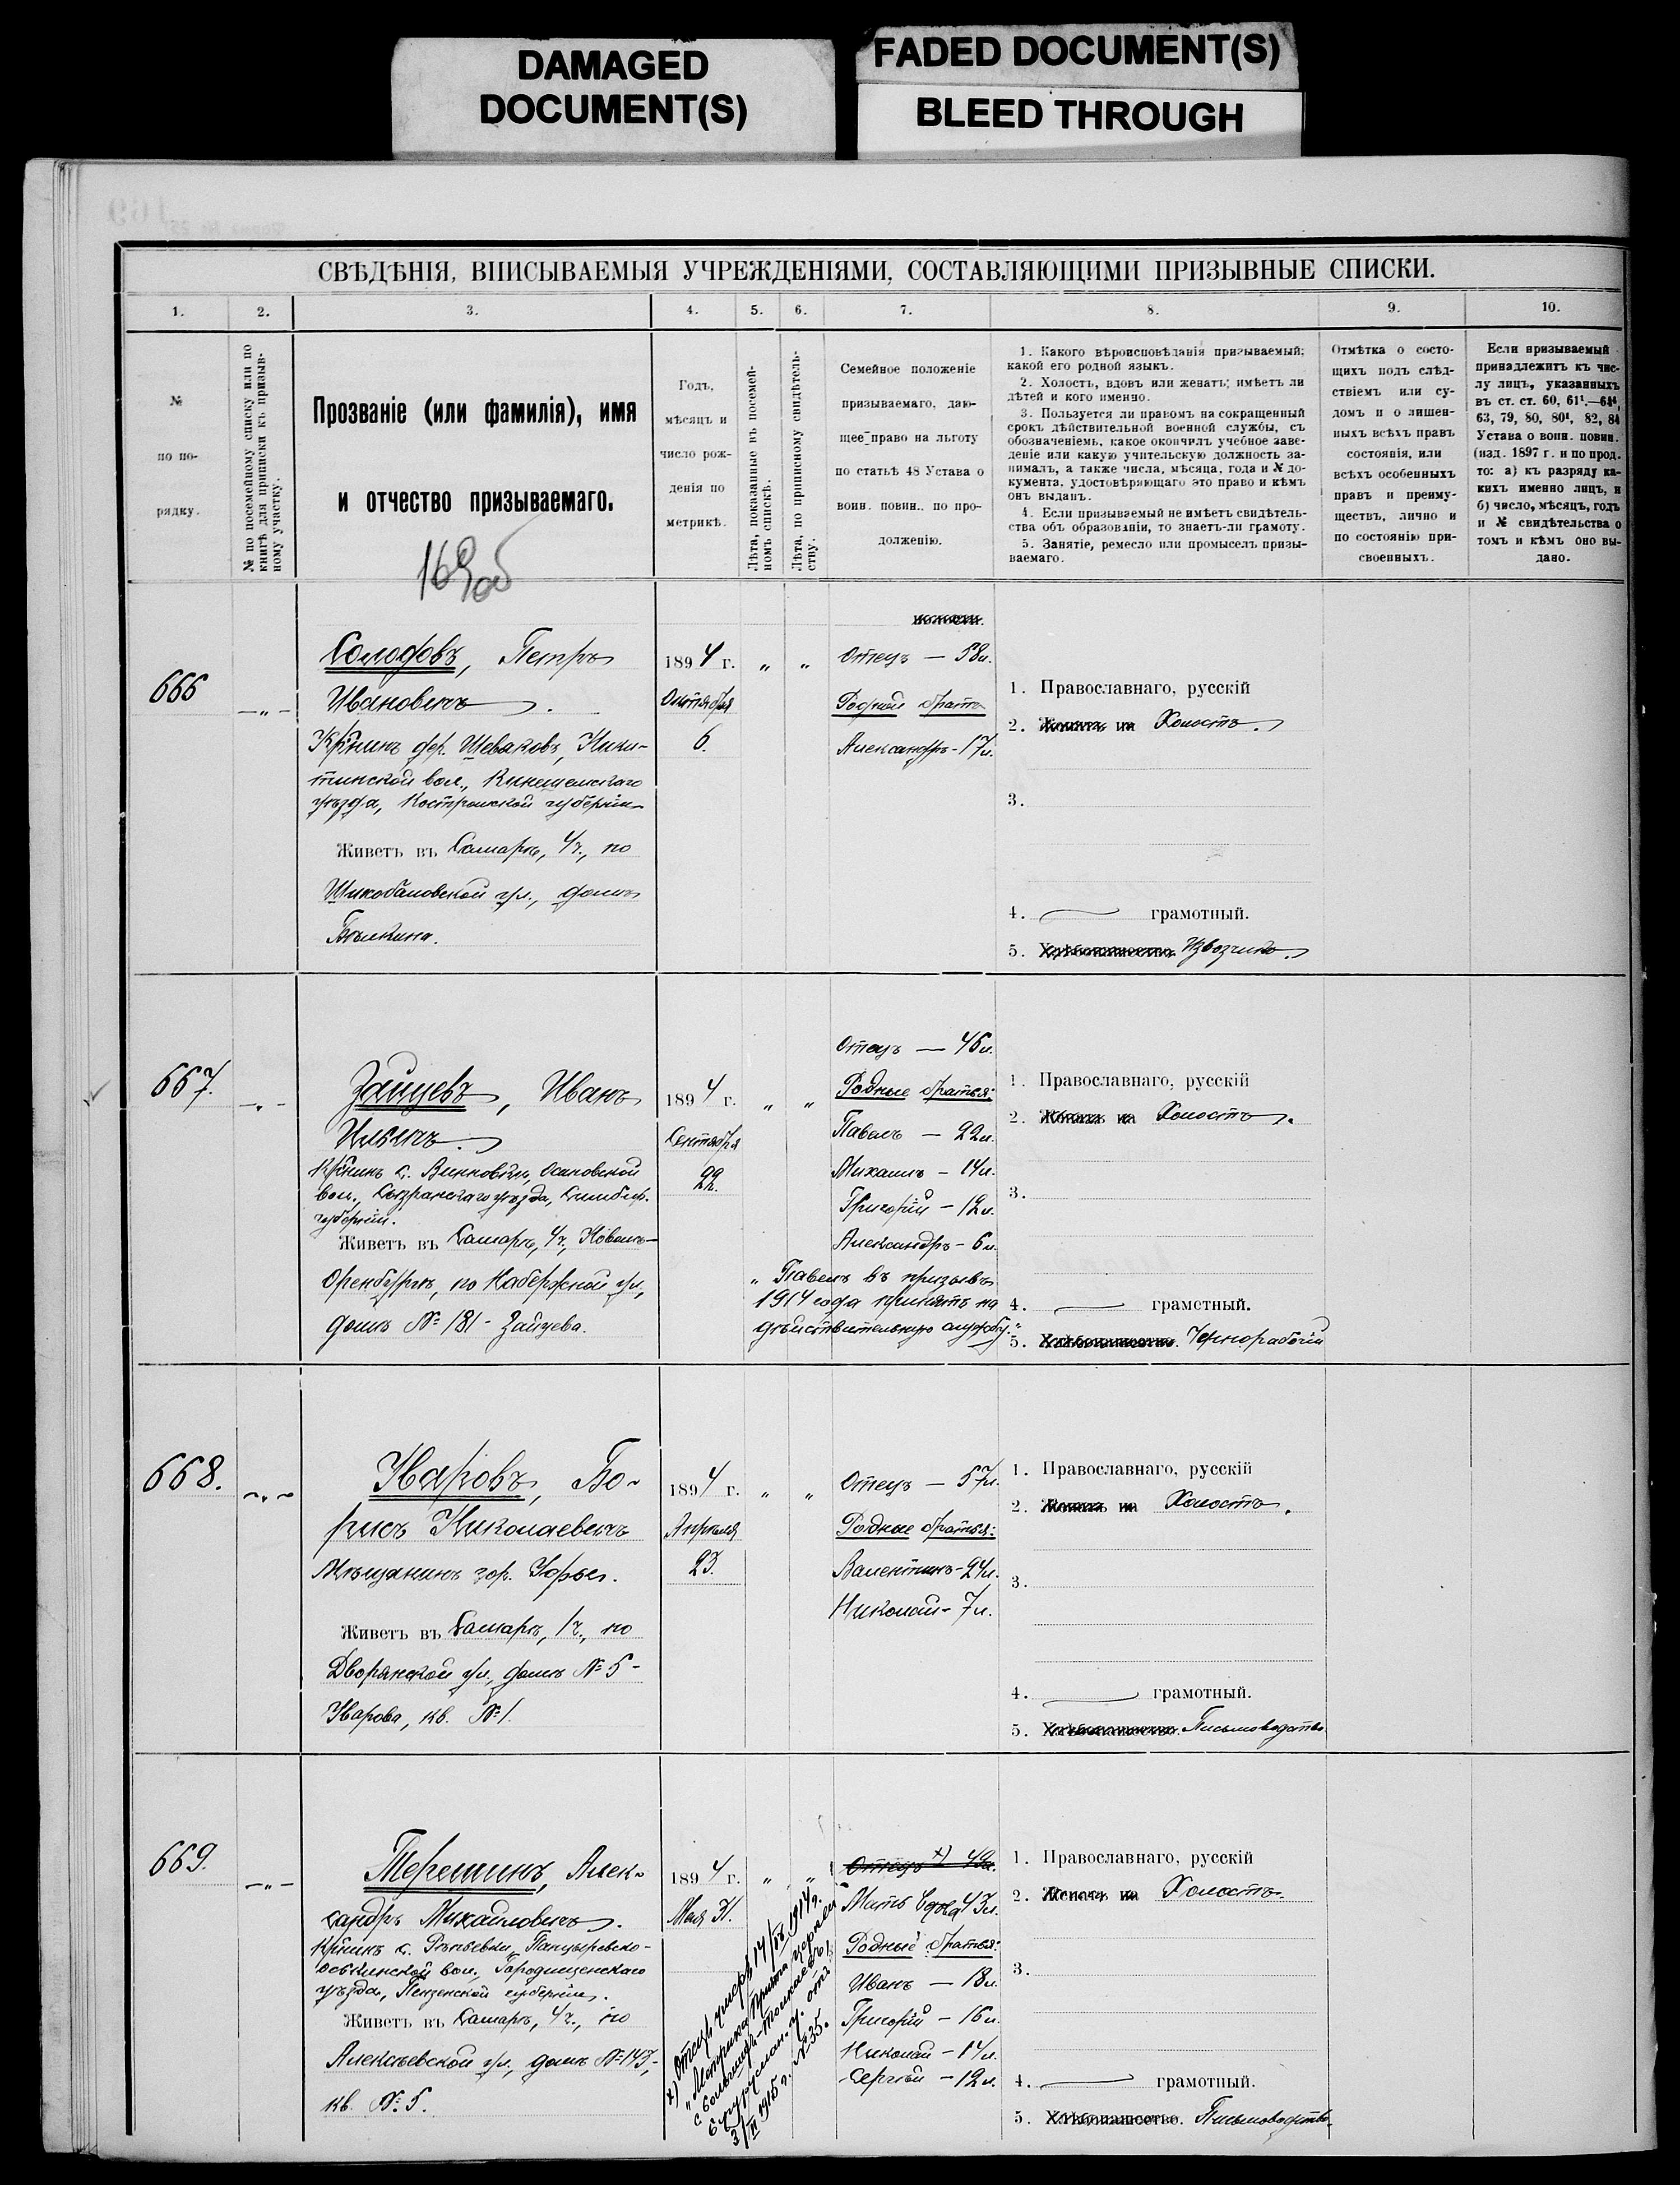 DAMAGED
DOCUMENT(S)
FADED DOCUMENT(S)
BLEED THROUGH
СВѢДѢНІЯ, ВПИСЫВАЕМЫЯ УЧРЕЖДЕНІЯМИ, СОСТАВЛЯЮЩИМИ ПРИЗЫВНЫЕ СПИСКИ.
1. 2. 3. 4. 5. 6. 7. 8. 9. 10.
№
по по-
рядку.
№ по посемейному списку или по
книгѣ для приписки къ призыв-
ному участку.
Прозваніе (или фамилія), имя
и отчество призываемаго.
169об
Годъ,
мѣсяцъ и
число рож-
денія по
метрикѣ.
Лѣта, показанные въ посемей-
номъ спискѣ.
Лѣта, по приписному свидѣтель-
ству.
Семейное положеніе
призываемаго, даю-
щее право на льготу
по статьѣ 48 Устава о
воин. повин.. по про-
долженію.
1. Какого вѣроисповѣданія призываемый;
какой его родной языкъ.
2. Холостъ, вдовъ или женатъ; имѣетъ ли
дѣтей и кого именно.
3. Пользуется ли правомъ на сокращенный
срокъ дѣйствительной военной службы, съ
обозначеніемъ, какое окончилъ учебное заве-
деніе или какую учительскую должность за-
нималъ, а также числа, мѣсяца, года и № до-
кумента, удостовѣряющаго это право и кѣмъ
онъ выданъ.
4. Если призываемый не имѣетъ свидѣтель-
ства объ образованіи, то знаетъ-ли грамоту.
5. Занятіе, ремесло или промыселъ призы-
ваемаго.
Отмѣтка о состо-
щихъ подъ слѣд-
ствіемъ или су-
домъ и о лишен-
ныхъ всѣхъ правъ
состоянія, или
всѣхъ особенныхъ
правъ и преиму-
ществъ, лично и
по состоянію при-
своенныхъ.
Если призываемый
принадлежитъ къ чис-
лу лицъ, указанныхъ
въ ст. ст. 60, 61¹.—64⁴,
63, 79, 80, 80¹, 82, 84
Устава о воин. повин.
(изд. 1897 г. и по прод.
то: а) къ разряду ка-
кихъ именно лицъ, и
б) число, мѣсяцъ, годъ
и № свидѣтельства о
томъ и кѣмъ оно вы-
дано.
666
—„—
Солодовъ, Петръ
Ивановичъ.
Кр̃нинъ дер. Шеваковъ, Ники-
тинской вол., Кинешемскаго
уѣзда, Костромской губерніи
Живетъ въ Самарѣ, 4ч., по
Шихобаловской ул., домъ
1894 г. „ „
Октября
6.
Отецъ — 58л.
Родной братъ
Александръ - 17л.
1. Православнаго, русскій
2. Женатъ на Холостъ.
3.
4. грамотный.
5. Хлѣбопашество. Извозчикъ.
667.
—„—
Зайцевъ, Иванъ
Ильичъ.
Кр̃нинъ с. Винновки, Осиновской
вол., Сызранскаго уѣзда, Симбир.
губерніи.
Живетъ въ Самарѣ, 4ч., Новомъ-
Оренбургѣ, по Набережной ул,
домъ № 181 - Зайцева.
1894 г. „ „
Сентября
22.
Отецъ — 46л.
Родные братья:
Павелъ — 22л.
Михаилъ — 14л.
Григорій — 12л.
Александръ - 6л.
„Павелъ въ призывъ
1914 года принятъ на
дѣйствительную службу."
1. Православнаго, русскій
2. Женатъ на Холостъ.
3.
4. грамотный.
5. Хлѣбопашество. Чернорабочій
668.
—„—
Уваровъ, Бо-
рисъ Николаевичъ
Мѣщанинъ гор. Уфы.
Живетъ въ Самарѣ, 1ч., по
Дворянской ул., домъ № 5 -
Уварова, кв. № 1.
1894 г. „ „
Апрѣля
23.
Отецъ — 57л.
Родные братья:
Валентинъ - 24л.
Николай - 7л.
1. Православнаго, русскій
2. Женатъ на Холостъ.
3.
4. грамотный.
5. Хлѣбопашество. Письмоводство.
669.
—„—
Терешинъ, Алек-
сандръ Михайловичъ.
Кр̃нинъ с. Рѣпьевки, Панцыревско-
вол., Городищенскаго
уѣзда, Пензенской губерніи.
Живетъ въ Самарѣ, 4ч., по
Алексѣевской ул., домъ № 143,
кв. № 5.
1894 г. „ „
Мая 31.
х) Отецъ умеръ 14/ 1914г.
„Метрика причта церкви
№ 35.
3/ 1915 г.
Отецъ х) 49л.
Мать вдова 43л.
Родные братья:
Иванъ — 18л.
Григорій — 16л.
Николай — 14л.
Сергѣй — 12л.
1. Православнаго, русскій
2. Женатъ на Холостъ.
3.
4. грамотный.
5. Хлѣбопашество. Письмоводство.